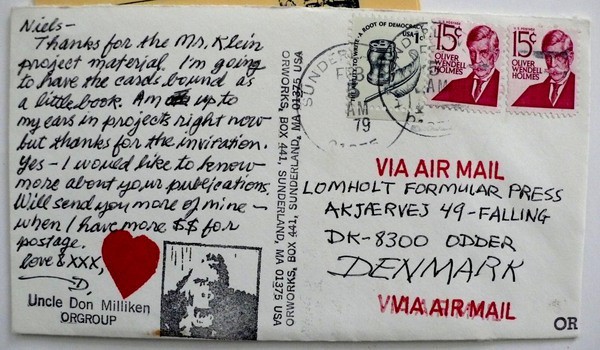 Niels-
Thanks for the Mr. Klein
project material. I'm going
to have the cards bound as
a little book. Am up to
my ears in projects right now
but thanks for the invitation.
Yes - I would like to know
more about your publications.
Will send you more of mine -
when I have more $$ for
postage.
love & XXX,
D.
Uncle Don Milliken
ORGROUP
ORWORKS, BOX 441, SUNDERLAND, MA 01375 USA
ORWORKS, BOX 441, SUNDERLAND, MA 01375 USA
SUNDER
FEB
AM
79
A ROOT OF DEMOCRACY
USA 1c
15¢
OLIVER
WENDELL
HOLMES
15¢
OLIVER
WENDELL
HOLMES
VIA AIR MAIL
LOMHOLT FORMULAR PRESS
AKJÆRVEJ 49-FALLING
DK-8300 ODDER
DENMARK
VIA AIR MAIL
OR